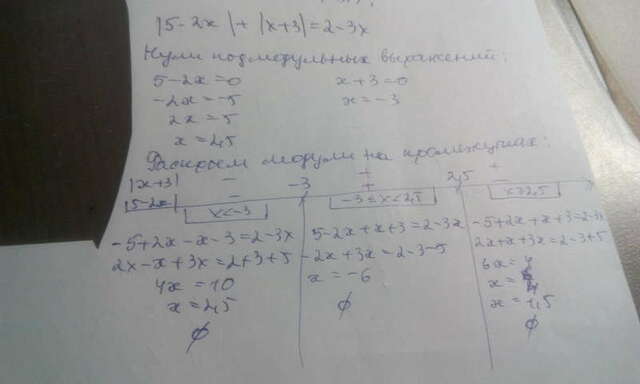 |5-2x|+|x+3|=2-3x
Нули подмодульных выражений:
5-2x=0 x+3=0
-2x=-5 x=-3
2x=5
x=2,5
Раскроем модули на промежутках:
|x+3| - -3 + 2,5 +
|5-2x| - +
x<-3 -3≤x<2,5 x≥2,5
-5+2x-x-3=2-3x 5-2x+x+3=2-3x -5+2x+x+3=2-3x
2x-x+3x=2+3+5 -2x+3x=2-3-5 2x+x+3x=2-3+5
4x=10 x=-6 6x=4
x=2,5 ∅ x=
∅ x=1,5
∅